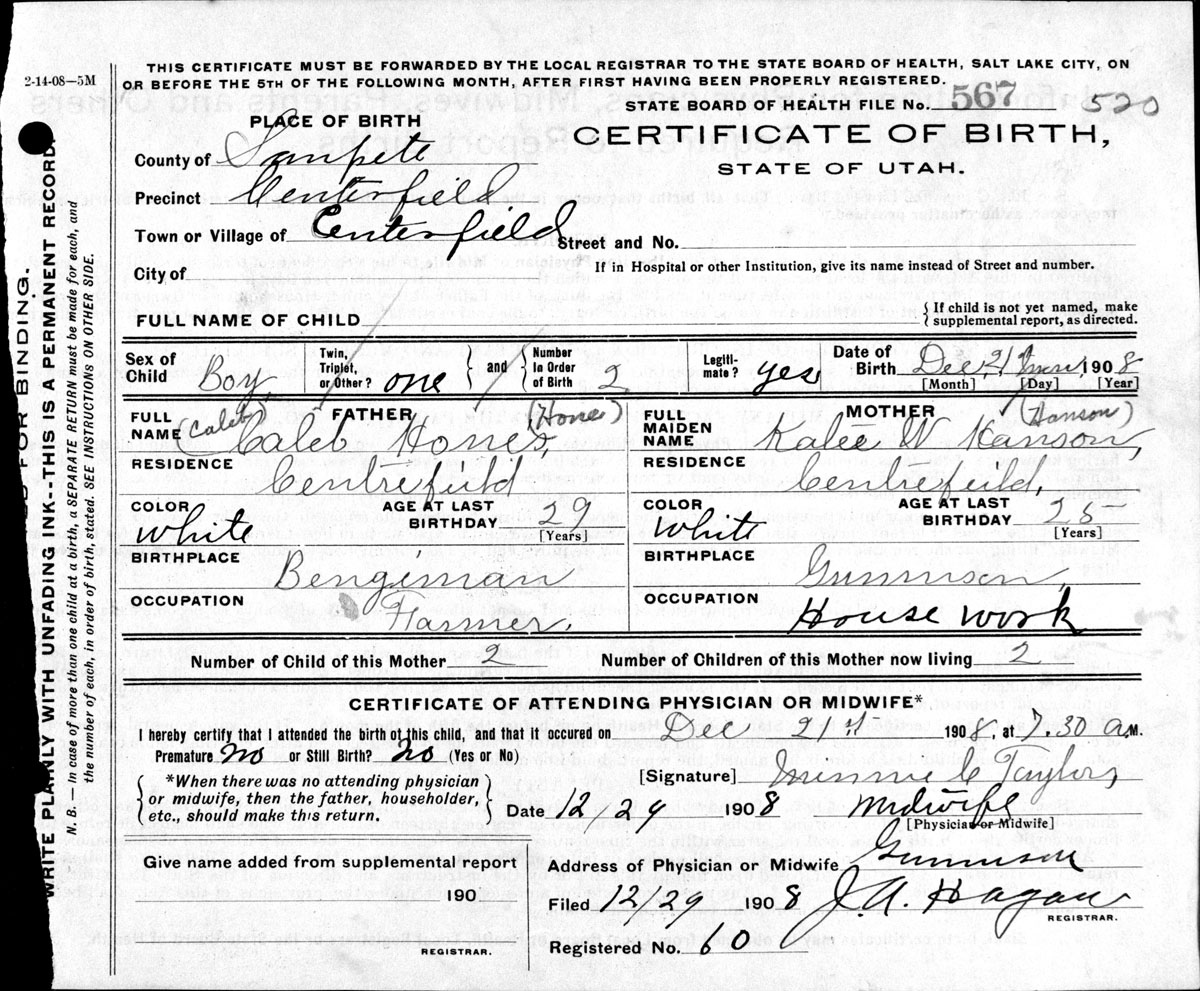 2-14-08—5M
THIS CERTIFICATE MUST BE FORWARDED BY THE LOCAL REGISTRAR TO THE STATE BOARD OF HEALTH, SALT LAKE CITY, ON
OR BEFORE THE 5TH OF THE FOLLOWING MONTH, AFTER FIRST HAVING BEEN PROPERLY REGISTERED.
STATE BOARD OF HEALTH FILE No. 567 520
PLACE OF BIRTH
CERTIFICATE OF BIRTH,
STATE OF UTAH.
County of Sanpete
Precinct Centerfield
Town or Village of Centerfield Street and No.
City of If in Hospital or other Institution, give its name instead of Street and number.
FULL NAME OF CHILD {If child is not yet named, make supplemental report, as directed.
Sex of Child Boy Twin, Triplet, or Other? one } and { Number In Order of Birth 2 Legitimate? yes Date of Birth Dec 21 1908
[Month] [Day] [Year]
FULL NAME (Caleb) FATHER (Hones) Caleb Hones,
FULL MAIDEN NAME MOTHER (Hanson) Kalee W Hanson,
RESIDENCE Centrefeild
RESIDENCE Centrefeild,
COLOR White AGE AT LAST BIRTHDAY 29 [Years]
COLOR White AGE AT LAST BIRTHDAY 25 [Years]
BIRTHPLACE Bengiman
BIRTHPLACE Gunnison,
OCCUPATION Farmer,
OCCUPATION House work
Number of Child of this Mother 2 Number of Children of this Mother now living 2
CERTIFICATE OF ATTENDING PHYSICIAN OR MIDWIFE*
I hereby certify that I attended the birth of this child, and that it occured on Dec 21st 1908, at 1.30 a M.
Premature? no or Still Birth? no (Yes or No)
{ *When there was no attending physician or midwife, then the father, householder, etc., should make this return. }
[Signature] Minnie C Taylor,
Date 12/29 1908 Midwife
[Physician or Midwife]
Give name added from supplemental report
190
REGISTRAR.
Address of Physician or Midwife Gunnison
Filed 12/29 1908 J. A. Hagan
REGISTRAR.
Registered No. 60
FOR BINDING.
WRITE PLAINLY WITH UNFADING INK--THIS IS A PERMANENT RECORD.
N. B.—In case of more than one child at a birth, a SEPARATE RETURN must be made for each, and
the number of each, in order of birth, stated. SEE INSTRUCTIONS ON OTHER SIDE.